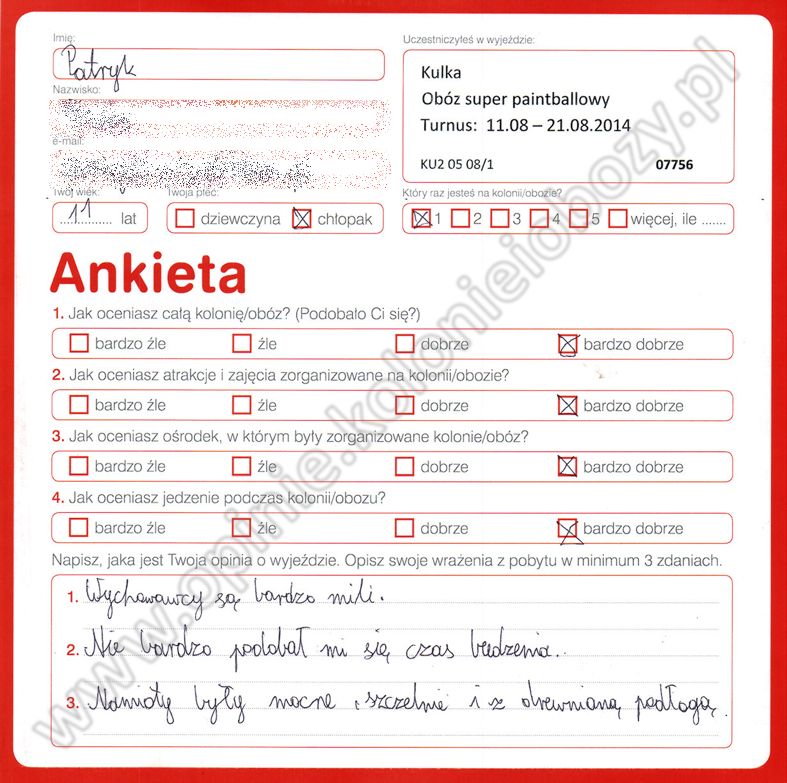 Imię:
Patryk
Nazwisko:
e-mail:
Twój wiek:
11 lat
Twoja płeć:
dziewczyna chłopak
Uczestniczyłeś w wyjeździe:
Kulka
Obóz super paintballowy
Turnus: 11.08 – 21.08.2014
KU2 05 08/1 07756
Który raz jesteś na kolonii/obozie?
1 2 3 4 5 więcej, ile .......
Ankieta
1. Jak oceniasz całą kolonię/obóz? (Podobało Ci się?)
bardzo źle źle dobrze bardzo dobrze
2. Jak oceniasz atrakcje i zajęcia zorganizowane na kolonii/obozie?
bardzo źle źle dobrze bardzo dobrze
3. Jak oceniasz ośrodek, w którym były zorganizowane kolonie/obóz?
bardzo źle źle dobrze bardzo dobrze
4. Jak oceniasz jedzenie podczas kolonii/obozu?
bardzo źle źle dobrze bardzo dobrze
Napisz, jaka jest Twoja opinia o wyjeździe. Opisz swoje wrażenia z pobytu w minimum 3 zdaniach.
1. Wychowawcy są bardzo mili.
2. Nie bardzo podobał mi się czas budzenia.
3. Namioty były mocne, szczelnie i z drewnianą podłogą.
www.opinie.kolonieiobozy.pl